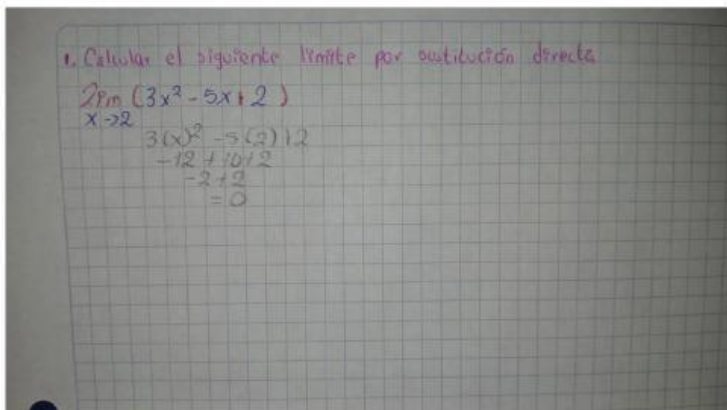 1. Calcular el siguiente limite por sustitución directa
lim (3x² - 5x + 2)
x→2
3(x)² - 5(2) + 2
-12 + 10 + 2
-2 + 2
= 0